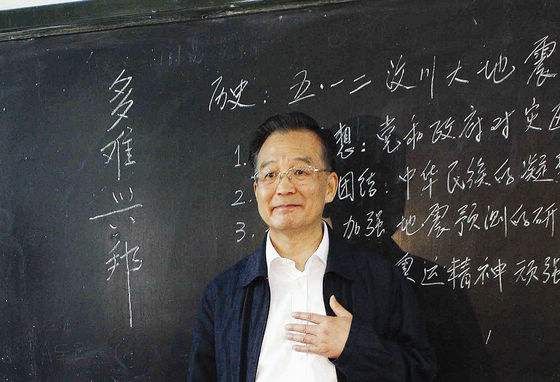 多难兴邦
历史：五·一二汶川大地震
1. 想：党和政府对灾
2. 团结：中华民族的凝
3. 加强地震预测的研
奥运精神顽强